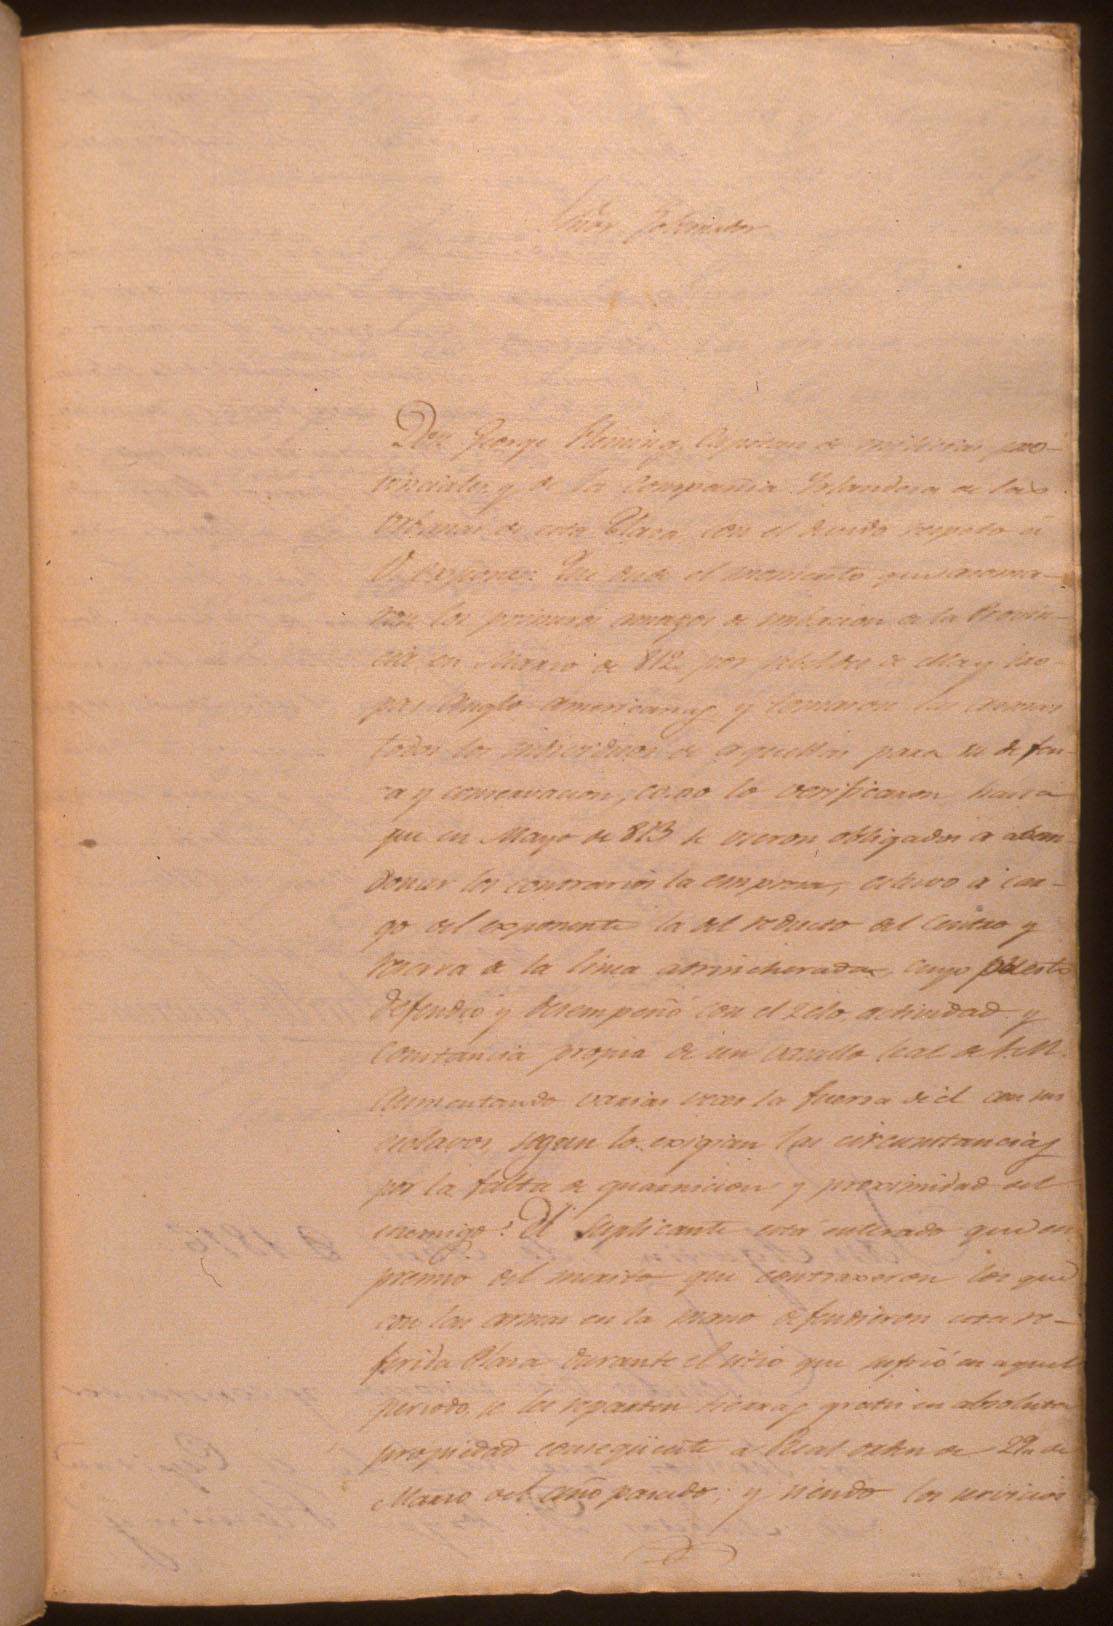 Señor Governador
Don George Fleming, Capitan de milicias pro-
vinciales y de la compañia Yrlandesa de las
Urbanas de esta Plaza, con el devido respeto á
V. expone: Que desde el momento que asoma-
ron los primeros amagos de imbacion de la Provin-
cia en Marzo de 812 por rebeldes de ella y tro-
pas Anglo Americanas y tomaron las armas
todos los individuos de aquellas para su defen-
sa y conservacion, como lo verificaron hasta
que en Mayo de 813 se vieron obligados a aban-
donar los contrarios la empresa, estuvo á car-
go del exponente la del reducto del Centro y
reserva de la linea atrincherada, cuyo puesto
defendió y desempeñó con el zelo, actividad y
constancia propia de un vasallo leal de S.M.
Aumentando varias veces la fuersa de él con sus
esclavos, segun lo exigian las circunstancias
por la falta de guarnicion y proximidad del
enemigo: El Suplicante está enterado que en
premio del merito que contraxeron los que
con las armas en la mano defendieron esta re-
ferida Plaza durante el sitio que sufrió en aquel
periodo, se les reparten tierras gratis en absoluta
propiedad conseqüente a Real orden de 29 de
Marzo del año pasado; y siendo los servicios